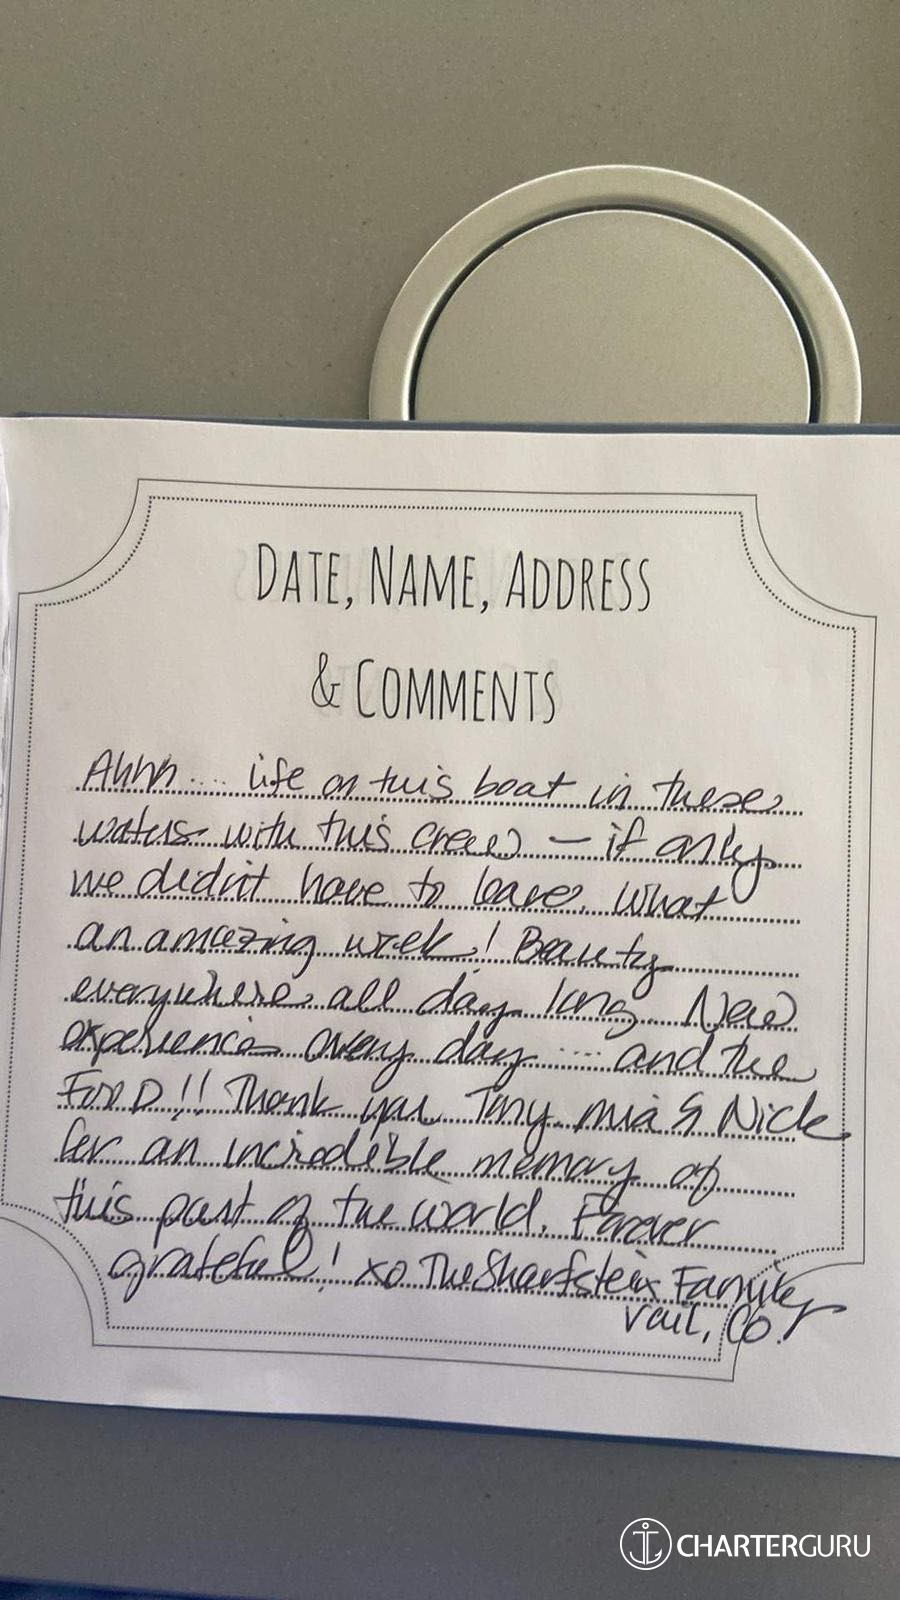 DATE, NAME, ADDRESS
& COMMENTS
Ahhh.... life on this boat in these
waters with this crew — if only
we didn't have to leave. What
an amazing week! Beauty
everywhere, all day long. New
experiences every day .... and the
FOOD!! Thank you Tony, Mia & Nick
for an incredible memory of
this part of the world. Forever
grateful! xo The Sharfstein Family
Vail, CO
CHARTERGURU